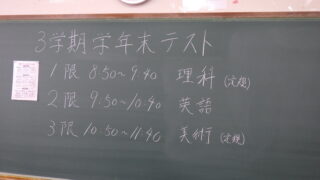 3学期学年末テスト
1限 8:50~9:40 理科
2限 9:50~10:40 英語
3限 10:50~11:40 美術